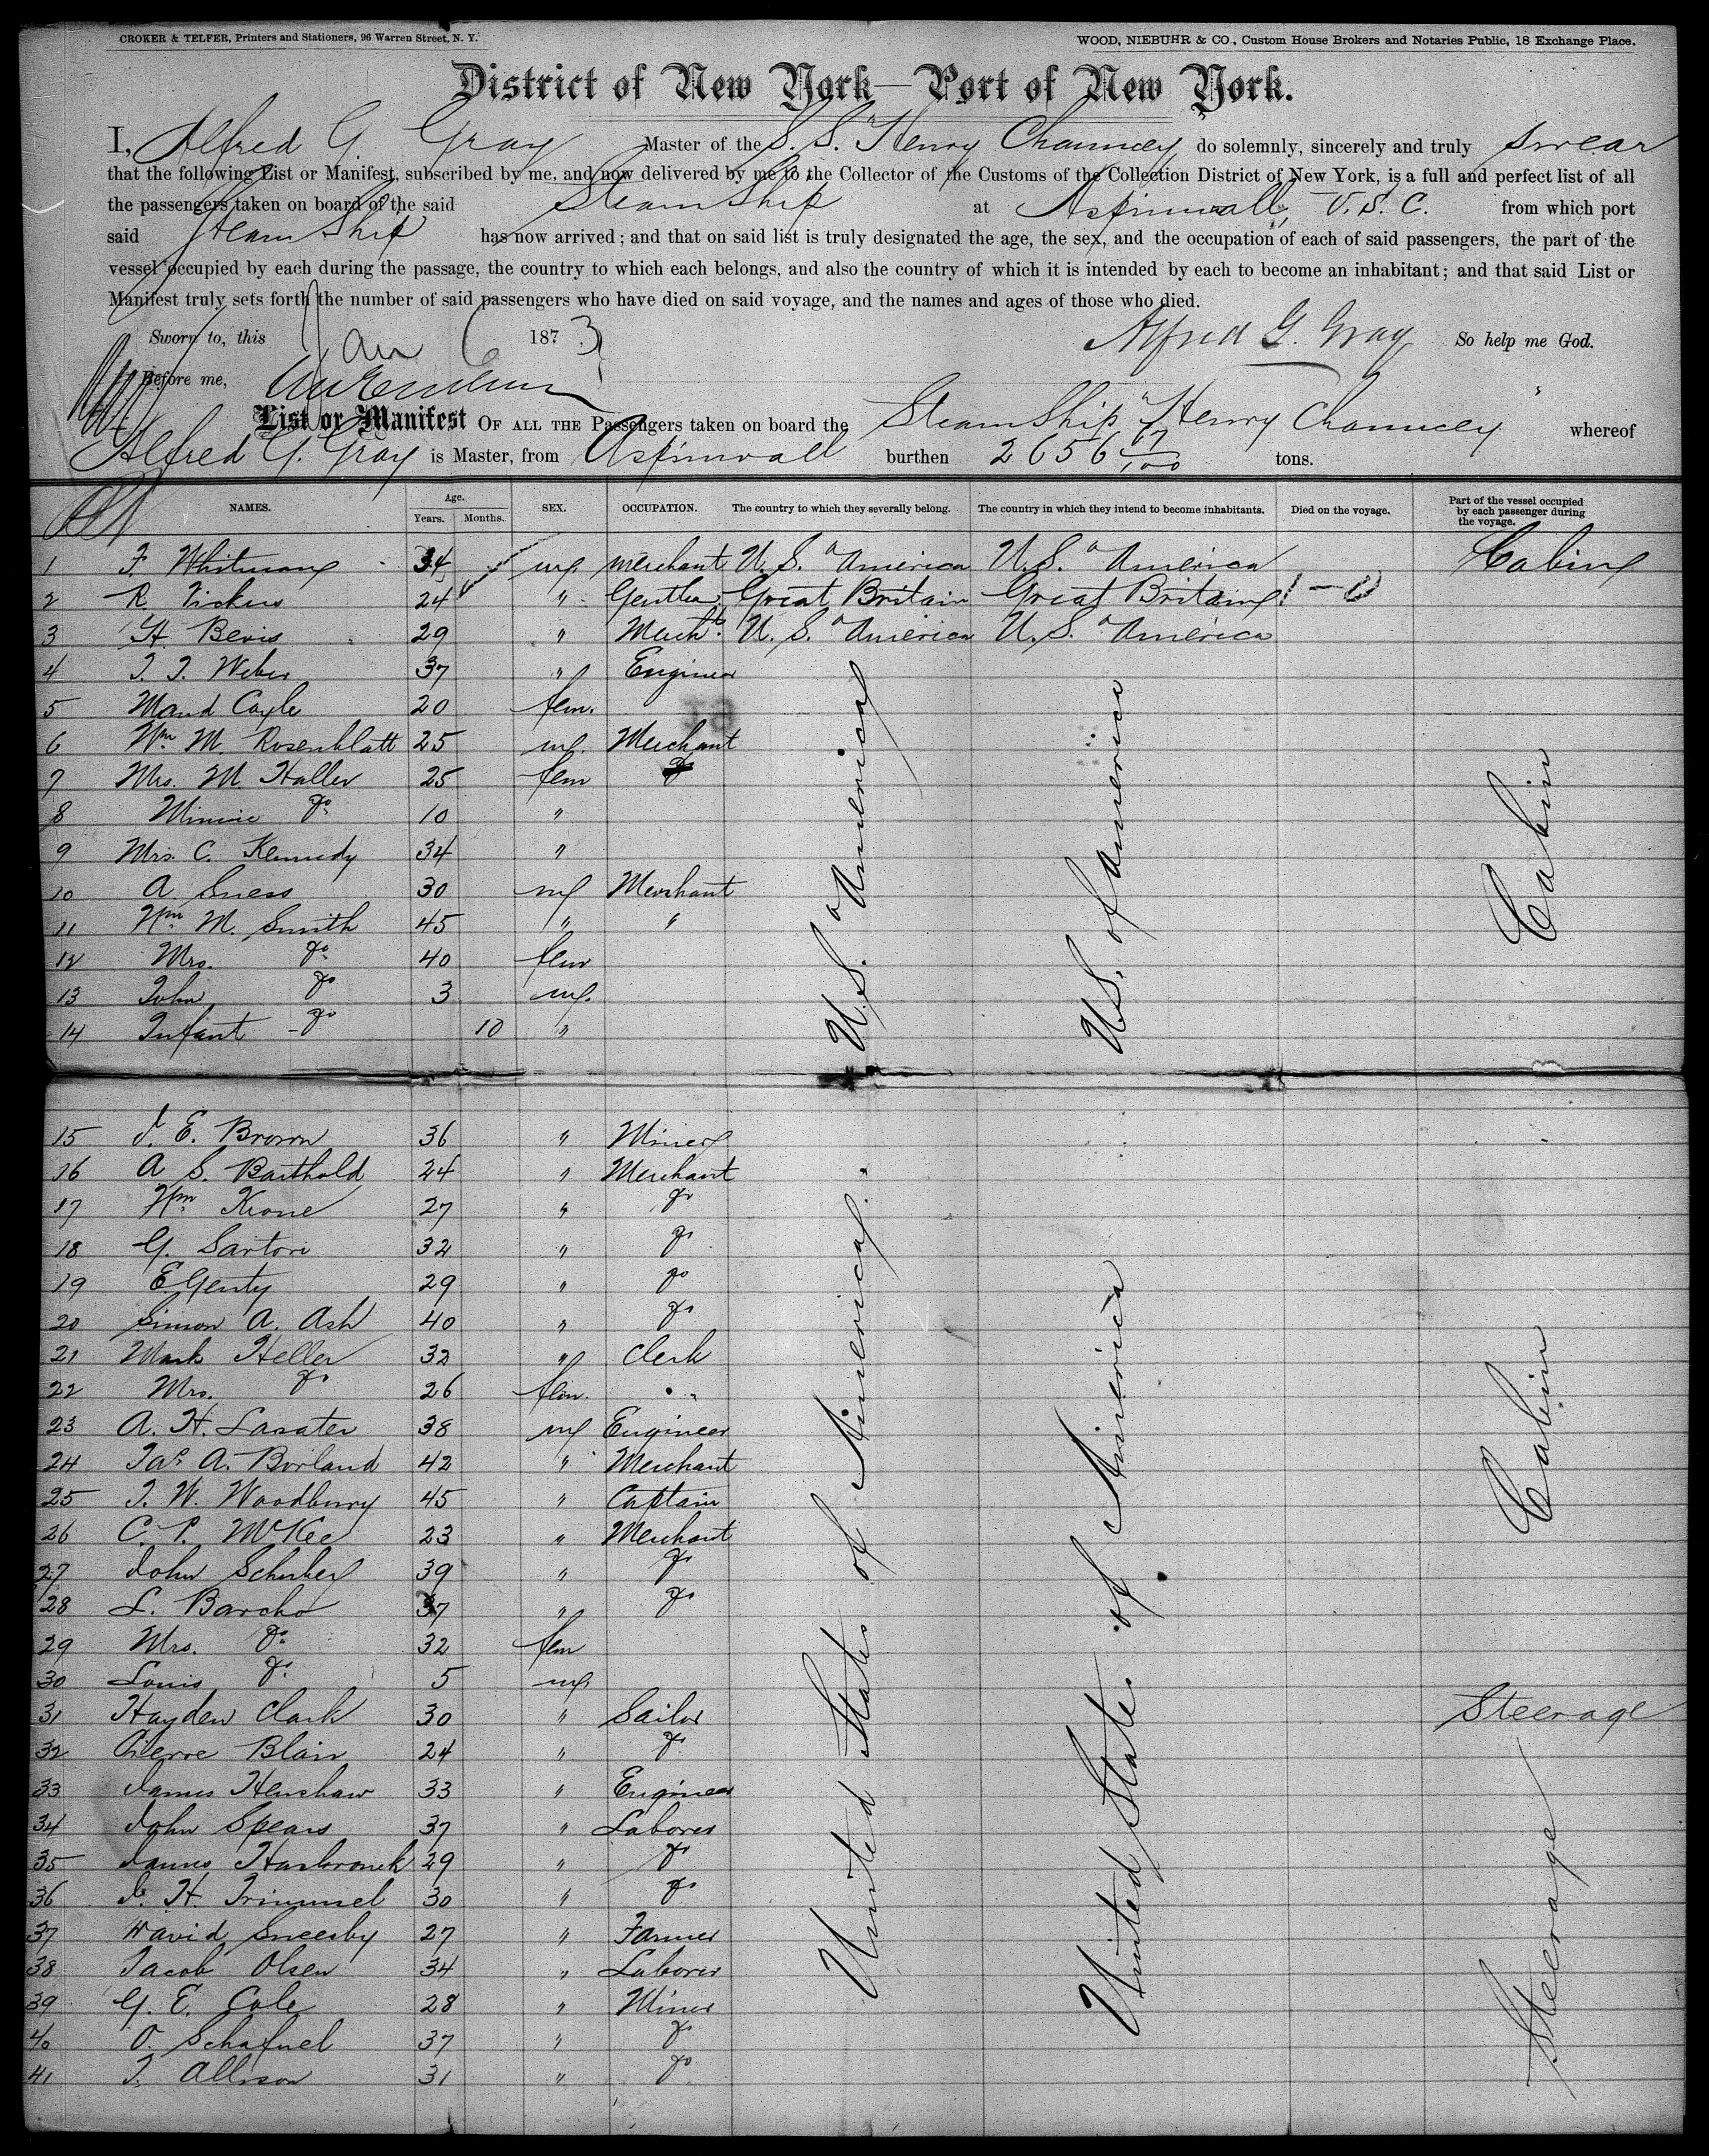 CROKER & TELFER, Printers and Stationers, 96 Warren Street, N. Y.
WOOD, NIEBUHR & CO., Custom House Brokers and Notaries Public, 18 Exchange Place.
District of New York—Port of New York.
I, Alfred G. Gray Master of the S. S. "Henry Chauncey do solemnly, sincerely and truly swear
that the following List or Manifest, subscribed by me, and now delivered by me to the Collector of the Customs of the Collection District of New York, is a full and perfect list of all
the passengers taken on board of the said Steam Ship at Aspinwall, U. S. C. from which port
said Steam Ship has now arrived; and that on said list is truly designated the age, the sex, and the occupation of each of said passengers, the part of the
vessel occupied by each during the passage, the country to which each belongs, and also the country of which it is intended by each to become an inhabitant; and that said List or
Manifest truly sets forth the number of said passengers who have died on said voyage, and the names and ages of those who died.
Sworn to, this Jan 6 1873 Alfred G. Gray So help me God.
Before me,
List or Manifest OF ALL THE Passengers taken on board the Steam Ship "Henry Chauncey" whereof
Alfred G. Gray is Master, from Aspinwall burthen 2656 67/100 tons.
NAMES. Age. Years. Months. SEX. OCCUPATION. The country to which they severally belong. The country in which they intend to become inhabitants. Died on the voyage. Part of the vessel occupied by each passenger during the voyage.
1 F. Whitman 34 m. merchant U. S. " America U. S. " America Cabin
2 R. Vickers 24 " Gentln. Great Britain Great Britain
3 H. Bevis 29 " Mercht. U. S. " America U. S. " America
4 J. J. Weber 37 " Engineer
5 Maud Coyle 20 fem.
6 Wm. M. Rosenblatt 25 m. Merchant
7 Mrs. M. Haller 25 fem
8 Minnie do. 10 "
9 Mrs. C. Kennedy 34 "
10 A. Suess 30 m Merchant
11 Wm. M. Smith 45 " "
12 Mrs. do. 40 fem
13 John do 3 m.
14 Infant - do 10 "
U. S. " America U S. of America Cabin
15 J. E. Brown 36 " Miner
16 A S. Barthold 24 " Merchant
17 Wm. Krone 27 " do
18 G. Sartori 32 " do
19 E Genty 29 " do
20 Simon A. Ash 40 " do
21 Mark Heller 32 " Clerk
22 Mrs. do 26 fem.
23 A. H. Lasater 38 m Engineer
24 Jas. A. Borland 42 " Merchant
25 J. W. Woodbury 45 " Captain
26 C. P. McKee 23 " Merchant
27 John Scherber 39 " do
28 L. Barcho 37 " do
29 Mrs. do. 32 fem
30 Louis do. 5 m
31 Hayden Clark 30 " Sailor Steerage
32 Pierre Blair 24 " do
33 James Henshaw 33 " Engineer
34 John Spears 37 " Laborer
35 James Hasbrouck 29 " do
36 J. H. Trimmel 30 " do
37 David Sneesby 27 " Farmer
38 Jacob Olsen 34 " Laborer
39 G. E. Cole 28 " Miner
40 O. Schafuel 37 " do
41 J. Allison 31 " do
United States of America United States of America Cabin Steerage